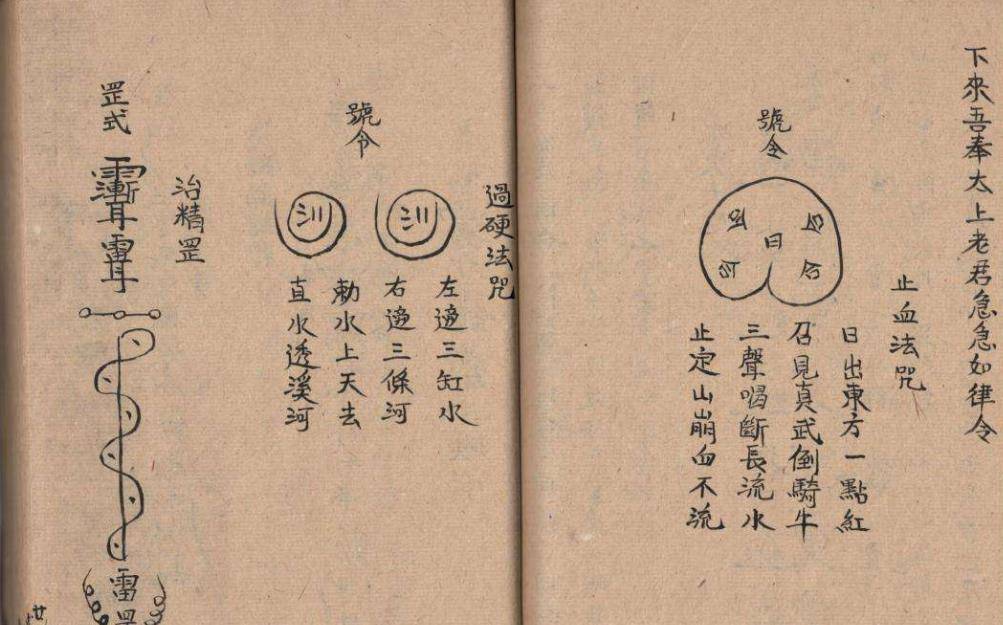 下來吾奉太上老君急急如律令
止血法咒
日出東方一點紅
召見真武倒騎牛
三聲喝斷長流水
止定山崩血不流
號令
日
過硬法咒
左邊三缸水
右邊三條河
勅水上天去
直水透溪河
號令
治精罡
罡式
雷罡